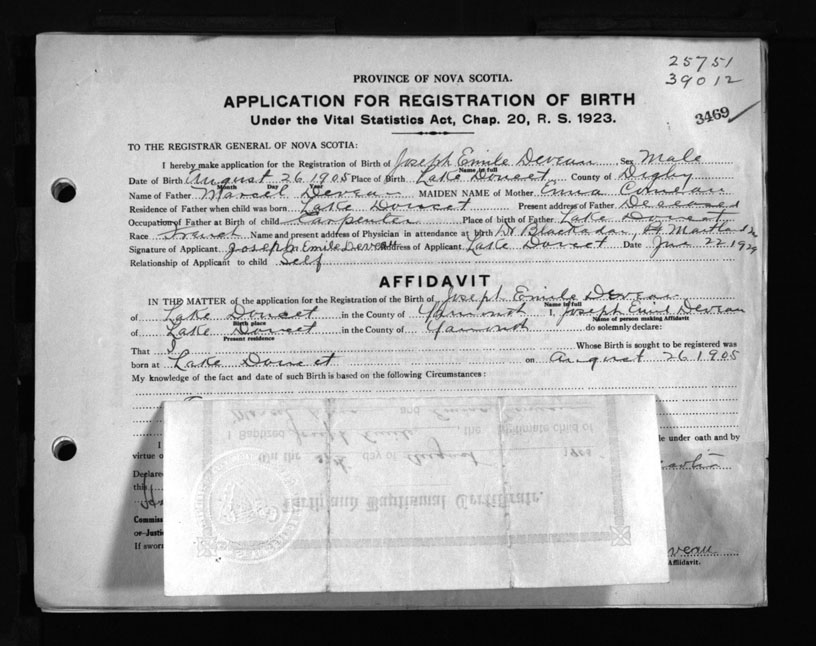 25751
39012
3469
PROVINCE OF NOVA SCOTIA.
APPLICATION FOR REGISTRATION OF BIRTH
Under the Vital Statistics Act, Chap. 20, R. S. 1923.
TO THE REGISTRAR GENERAL OF NOVA SCOTIA:
I hereby make application for the Registration of Birth of Joseph Emile Deveau Sex Male
Name in full
Date of Birth August 26 1905 Place of Birth Lake Doucet County of Digby
Month Day Year
Name of Father Marcel Deveau MAIDEN NAME of Mother Emma Comeau
Residence of Father when child was born Lake Doucet Present address of Father Deceased
Occupation of Father at Birth of child Carpenter Place of birth of Father Lake Doucet
Race French Name and present address of Physician in attendance at birth Dr Blackadar,
Signature of Applicant Joseph Emile Deveau Address of Applicant Lake Doucet Date June 22 1929
Relationship of Applicant to child Self
AFFIDAVIT
IN THE MATTER of the application for the Registration of the Birth of Joseph Emile Deveau
Name in full
of Lake Doucet in the County of Yarmouth I, Joseph Emile Deveau
Birth place Name of person making Affidavit
of Lake Doucet in the County of Yarmouth do solemnly declare:
Present residence
That I Whose Birth is sought to be registered was
born at Lake Doucet on August 26 1905
My knowledge of the fact and date of such Birth is based on the following Circumstances:
Marcel and Emma
I Baptized Joseph Emile the legitimate child of
On the day of August
Birth and Baptismal Certificate.
I
le under oath and by
virtue o
Declared
this
Commiss
or Justic
If sworn
veau
Affidavit.